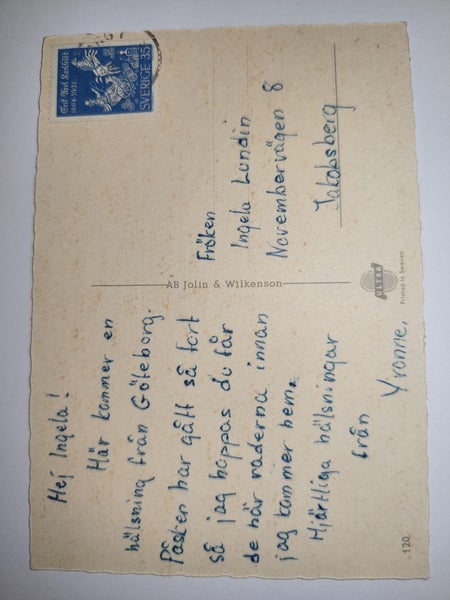 Hej Ingela!
Här kommer en
hälsning från Göteborg.
Påsken har gått så fort
så jag hoppas du får
de här raderna innan
jag kommer hem.
Hjärtliga hälsningar
från
Yvonne.
120.
AB Jolin & Wilkenson
ULTRA
Printed in Sweden
Erik Axel Karlfeldt
1864-1931
SVERIGE 35
Fröken
Ingela Lundin
Novembervägen 8
Jakobsberg